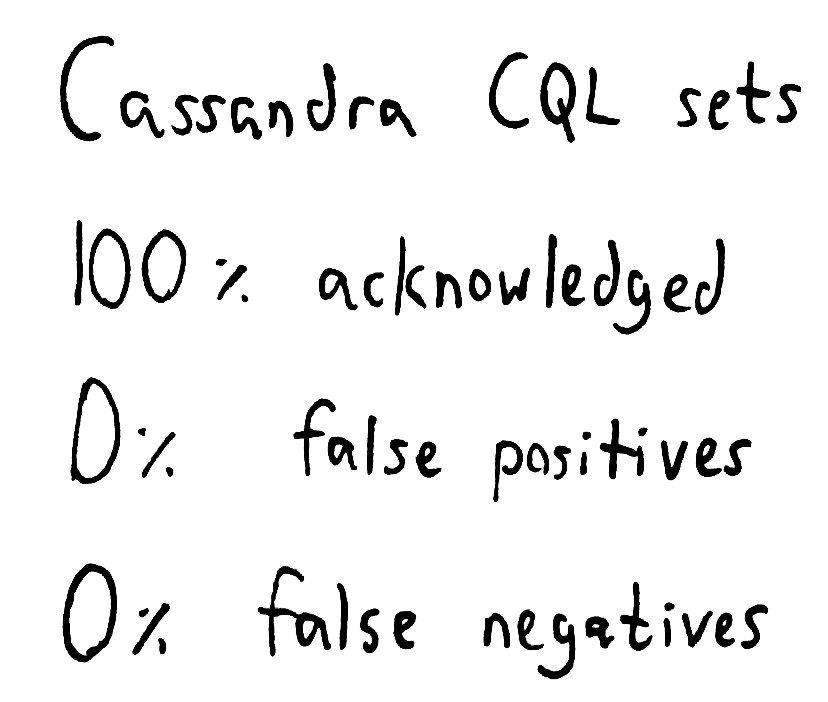 Cassandra CQL sets
100% acknowledged
0% false positives
0% false negatives